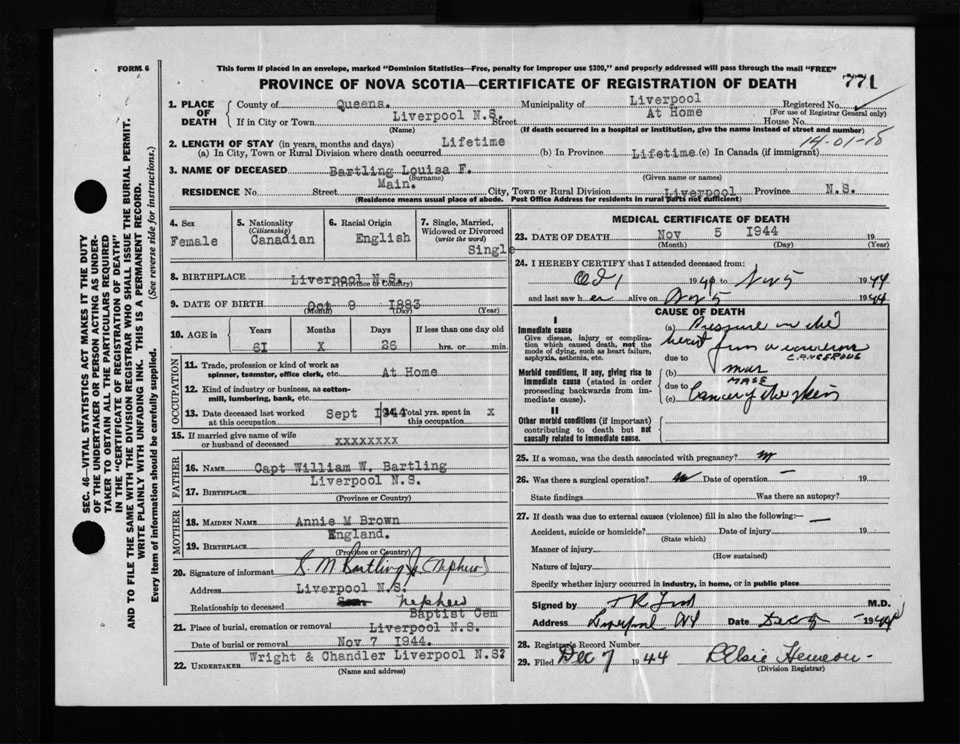 FORM 6
This form if placed in an envelope, marked "Dominion Statistics—Free, penalty for improper use $300," and properly addressed will pass through the mail "FREE"
PROVINCE OF NOVA SCOTIA—CERTIFICATE OF REGISTRATION OF DEATH 771
1. PLACE OF DEATH
County of Queens. Municipality of Liverpool Registered No.
(For use of Registrar General only)
If in City or Town Liverpool N.S. Street At Home House No.
(Name) (If death occurred in a hospital or institution, give the name instead of street and number)
14-01-18
2. LENGTH OF STAY (in years, months and days)
(a) In City, Town or Rural Division where death occurred Lifetime (b) In Province Lifetime (c) In Canada (if immigrant)
3. NAME OF DECEASED Bartling Louisa F.
(Surname) (Given name or names)
RESIDENCE No. Street Main. City, Town or Rural Division Liverpool Province N.S.
(Residence means usual place of abode. Post Office Address for residents in rural parts not sufficient)
4. Sex Female
5. Nationality (Citizenship) Canadian
6. Racial Origin English
7. Single, Married, Widowed or Divorced (write the word) Single
8. BIRTHPLACE Liverpool N.S.
(Province or Country)
9. DATE OF BIRTH Oct 9 1883
(Month) (Day) (Year)
10. AGE in Years Months Days If less than one day old
61 X 26 hrs. or min.
OCCUPATION
11. Trade, profession or kind of work as spinner, teamster, office clerk, etc. At Home
12. Kind of industry or business, as cotton-mill, lumbering, bank, etc.
13. Date deceased last worked at this occupation Sept 1944
14. Total yrs. spent in this occupation X
15. If married give name of wife or husband of deceased xxxxxxxx
FATHER
16. NAME Capt William W. Bartling
17. BIRTHPLACE Liverpool N.S.
(Province or Country)
MOTHER
18. MAIDEN NAME Annie M Brown
19. BIRTHPLACE England.
(Province or Country)
20. Signature of informant S. M Bartling Jr (Nephew)
Address Liverpool N.S.
Relationship to deceased Nephew
Baptist Cem
21. Place of burial, cremation or removal Liverpool N.S.
Date of burial or removal Nov 7 1944.
22. UNDERTAKER Wright & Chandler Liverpool N.S?
(Name and address)
MEDICAL CERTIFICATE OF DEATH
23. DATE OF DEATH Nov 5 1944 19
(Month) (Day) (Year)
24. I HEREBY CERTIFY that I attended deceased from:
Oct 1 1940 to Nov 5 1944
and last saw her alive on Nov 5 1944
CAUSE OF DEATH
I
Immediate cause
Give disease, injury or complication which caused death, not the mode of dying, such as heart failure, asphyxia, asthenia, etc.
Morbid conditions, if any, giving rise to immediate cause (stated in order proceeding backwards from immediate cause).
II
Other morbid conditions (if important) contributing to death but not causally related to immediate cause.
(a) Pressure on the
heart from a cancerous
due to CANCEROUS
(b) mass
MASS
due to
(c) Cancer of the skin
25. If a woman, was the death associated with pregnancy? no
26. Was there a surgical operation? no Date of operation — 19
State findings Was there an autopsy?
27. If death was due to external causes (violence) fill in also the following:— —
Accident, suicide or homicide? Date of injury 19
(State which)
Manner of injury
(How sustained)
Nature of injury
Specify whether injury occurred in industry, in home, or in public place
Signed by M.D.
Address Liverpool NS Date Dec 1944
28. Registrar's Record Number
29. Filed Dec 7 1944 Elsie
(Division Registrar)
SEC. 46—VITAL STATISTICS ACT MAKES IT THE DUTY
OF THE UNDERTAKER OR PERSON ACTING AS UNDER-
TAKER TO OBTAIN ALL THE PARTICULARS REQUIRED
IN THE "CERTIFICATE OF REGISTRATION OF DEATH"
AND TO FILE THE SAME WITH THE DIVISION REGISTRAR WHO SHALL ISSUE THE BURIAL PERMIT.
WRITE PLAINLY WITH UNFADING INK. THIS IS A PERMANENT RECORD.
Every item of information should be carefully supplied. (See reverse side for instructions.)